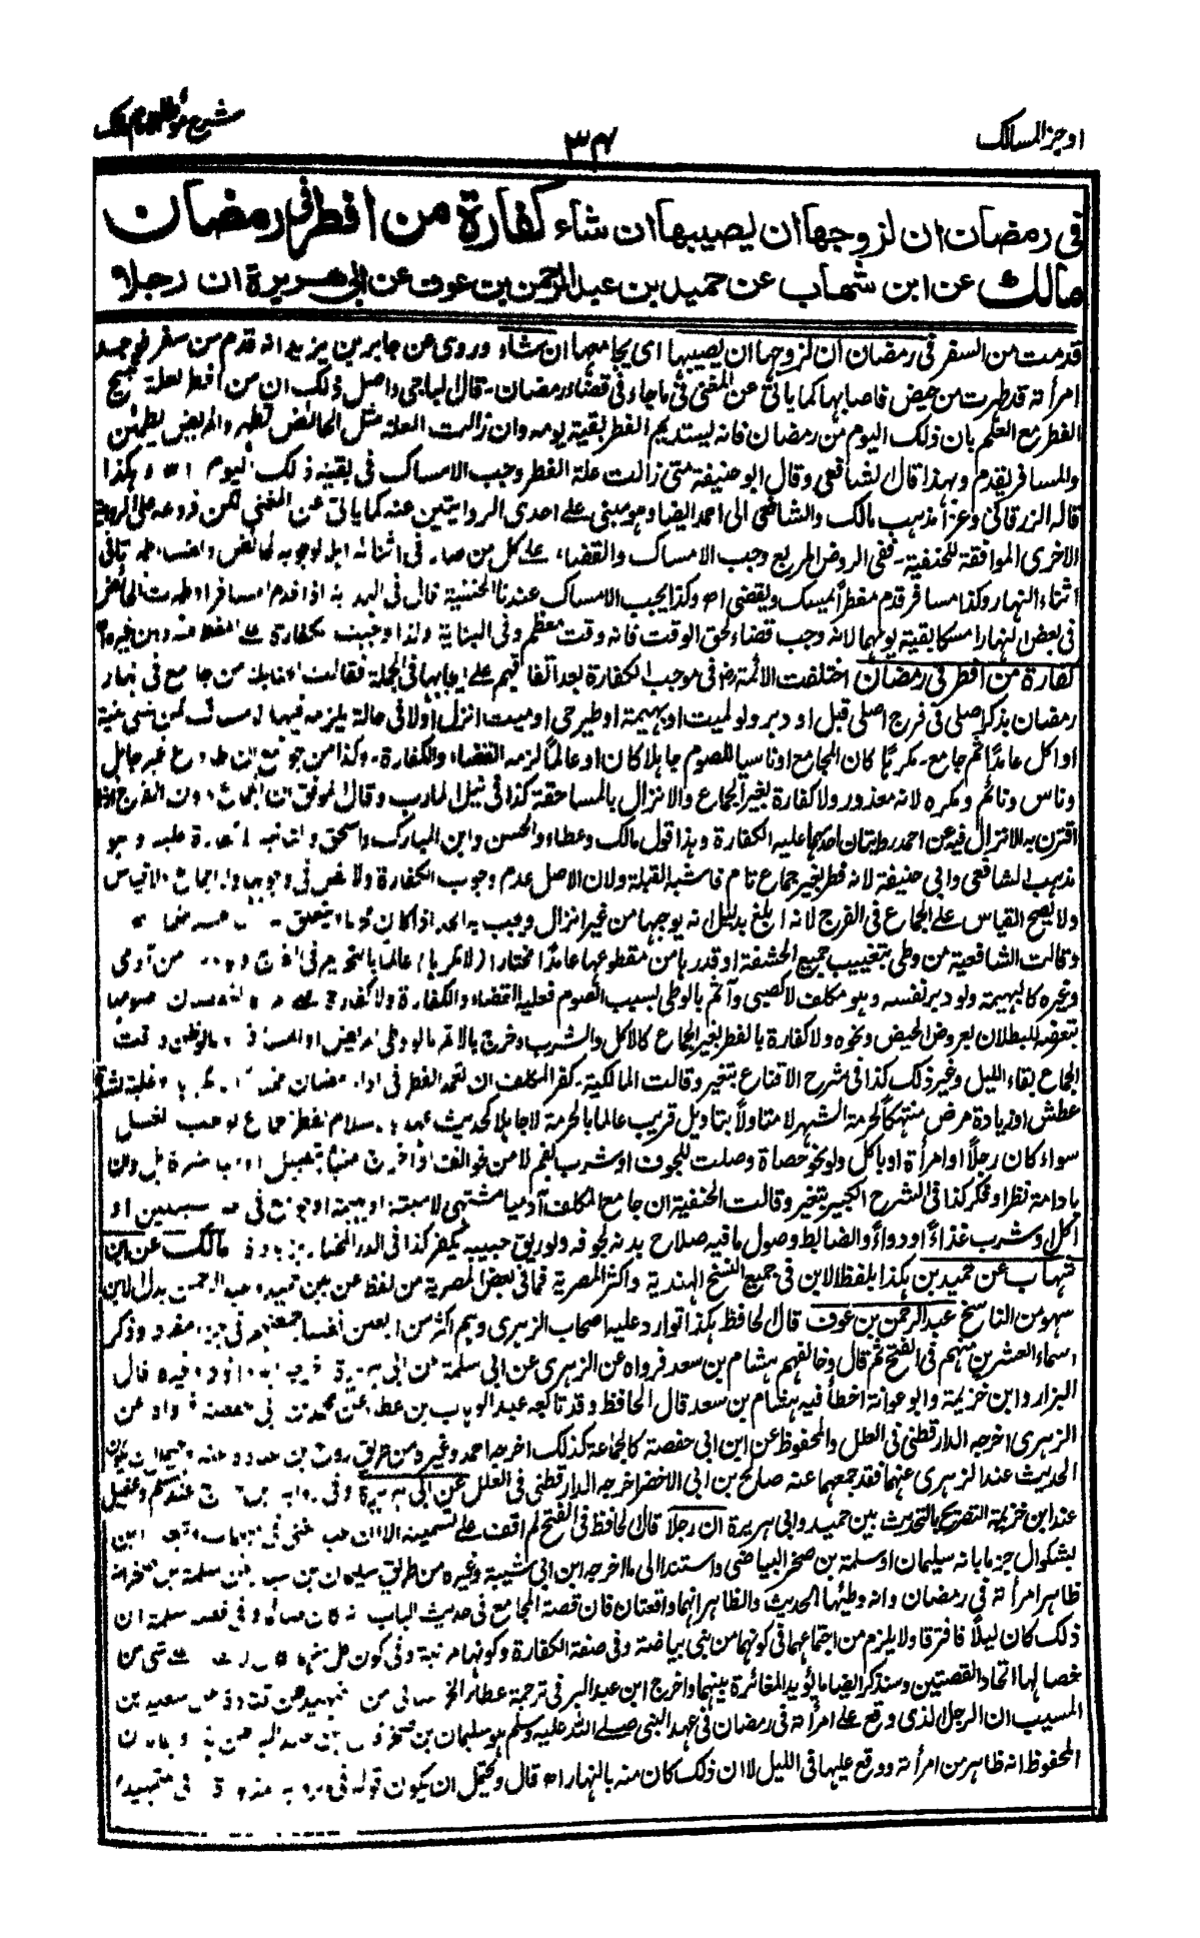 اوجز المسالك
٣٤
شرح موطا الامام مالك
فى رمضان ان لزوجها ان يصيبها ان شاء كفارة من افطر فى رمضان
مالك عن ابن شهاب عن حميد بن عبد الرحمن بن عوف عن ابى هريرة ان رجلا
قدمت من السفر فى رمضان ان لزوجها ان يصيبها اى يجامعها ان شاء وروى عن جابر بن يزيد انه قدم من سفر فوجد
امرأته قد طهرت من حيض فاصابها كما ياتى عن المغنى فى ما جاء فى قضاء رمضان - قال الباجى واصل ذلك ان من افطر لعلة تبيح
الفطر مع العلم بان ذلك اليوم من رمضان فانه يستديم الفطر بقية يومه وان زالت العلة مثل الحائض تطهر والمريض يطمئن
والمسافر يقدم وبهذا قال الشافعى وقال ابو حنيفة متى زالت علة الفطر وجب الامساك فى بقية ذلك اليوم اھ وهكذا
قاله الزرقانى وعزا مذهب مالك والشافعى الى احمد ايضا وهو مبنى على احدى الروايتين عنه كما ياتى عن المغنى لكن فروعه على الرواية
الاخرى الموافقة للحنفية - ففى الروض المربع وجب الامساك والقضاء على كل من صار فى اثنائه اهلا لوجوبه
اثناء النهار وكذا مسافر قدم مفطرا يمسك ويقضى اھ وكذا يجب الامساك عندنا الحنفية قال فى الهداية اذا قدم المسافر او طهرت الحائض
فى بعض النهار امسكا بقية يومهما لانه وجب قضاء لحق الوقت فانه وقت معظم وفى البناية ولذا وجبت الكفارة على المفطر فيه دون غيره
كفارة من افطر فى رمضان اختلفت الائمة فى موجب الكفارة بعد اتفاقهم على ايجابها فى الجملة فقالت الحنابلة من جامع فى نهار
رمضان بذكر اصلى فى فرج اصلى قبل او دبر ولو لميت او بهيمة او طير حى او ميت انزل اولا فى حالة يلزمه فيها الامساك
او اكل عامدا ثم جامع - مكرها كان المجامع او ناسيا للصوم جاهلا كان او عالما لزمه القضاء والكفارة - وكذا من جومع ان طاوع غير جاهل
وناس ونائم ومكره لانه معذور ولا كفارة بغير الجماع والانزال بالمساحقة كذا فى نيل المارب وقال الموفق
اقترن به الانزال فيه عن احمد روايتان احدهما عليه الكفارة وهذا قول مالك وعطاء والحسن وابن المبارك واسحق والثانية لا كفارة عليه وهو
مذهب الشافعى وابى حنيفة لانه فطر بغير جماع تام فاشبه القبلة ولان الاصل عدم وجوب الكفارة ولا نص فى وجوبها ولا اجماع ولا قياس
ولا يصح القياس على الجماع فى الفرج لانه ابلغ بدليل انه يوجبها من غير انزال ويجب به الحد اذا كان محرما ويتعلق به
وقالت الشافعية من وطى بتغييب جميع الحشفة او قدرها من مقطوعها عامدا مختارا (لا مكرها) عالما بالتحريم فى الفرج من آدمى
وغيره كالبهيمة ولو دبر نفسه وهو مكلف لا كصبى وآثم بالوطى بسبب الصوم فعليه القضاء والكفارة
بتعرضه للبطلان بعروض الحيض ونحوه ولا كفارة بالفطر بغير الجماع كالاكل والشرب وخرج بالاثم ما لو وطى المريض او المسافر
الجماع بقاء الليل وغير ذلك كذا فى شرح الاقناع بتغير وقالت المالكية - كفر المكلف ان تعمد الفطر فى اداء رمضان
عطش او زيادة مرض منتهكا لحرمة الشهر لا متاولا بتاويل قريب عالما بالحرمة لا جاهلا كحديث عهد باسلام بفطر جماع يوجب الغسل
سواء كان رجلا او امرأة او باكل ولو نحو حصاة وصلت للجوف او شرب بفم لا من نحو انف
بادامة نظر او فكر كذا فى الشرح الكبير بتغير وقالت الحنفية ان جامع المكلف آدميا مشتهى لا ميتة او بهيمة او جومع فى احد السبيلين او
اكل او شرب غذاء او دواء والضابط وصول ما فيه صلاح بدنه لجوفه ولو ريق حبيبه يكفر كذا فى الدر المختار بزيادة مالك عن ابن
شهاب عن حميد بن هكذا بلفظ الابن فى جميع النسخ الهندية واكثر المصرية فما فى بعض المصرية من لفظ عن بين حميد وعبد الرحمن بدل الابن
سهو من الناسخ عبد الرحمن بن عوف قال الحافظ هكذا توارد عليه اصحاب الزهرى وهم اكثر من اربعين نفسا جمعتهم فى جزء مفرد وذكر
اسماء العشرين منهم فى الفتح ثم قال وخالفهم هشام بن سعد فرواه عن الزهرى عن ابى سلمة عن ابى هريرة اخرجه ابو داود وغيره قال
البزار وابن خزيمة وابو عوانة اخطأ فيه هشام بن سعد قال الحافظ وقد تابعه عبد الوهاب بن عطاء عن محمد بن ابى حفصة فرواه عن
الزهرى اخرجه الدارقطنى فى العلل والمحفوظ عن ابن ابى حفصة كالجماعة كذلك اخرجه احمد وغيره من طريق روح بن عبادة عنه
الحديث عند الزهرى عنهما فقد جمعهما عنه صالح بن ابى الاخضر اخرجه الدارقطنى فى العلل عن ابى هريرة وفى رواية
عند ابن خزيمة التصريح بالتحديث بين حميد وابى هريرة ان رجلا قال الحافظ فى الفتح لم اقف على تسميته الا ان عبد الغنى فى المبهمات وتبعه ابن
بشكوال جزما بانه سليمان او سلمة بن صخر البياضى واستند الى ما اخرجه ابن ابى شيبة وغيره من طريق سليمان بن يسار عن سلمة بن صخر انه
ظاهر امرأته فى رمضان وانه وطيها الحديث والظاهر انهما واقعتان فان قصة المجامع فى حديث الباب انه كان صائما وفى قصة سلمة ان
ذلك كان ليلا فافترقا ولا يلزم من اجتماعهما فى كونهما من بنى بياضة وفى صفة الكفارة وكونها مرتبة وفى كون كل منهما
خصالها اتحاد القصتين وسنذكر ايضا ما يؤيد المغائرة بينهما واخرج ابن عبد البر فى ترجمة عطاء الخراسانى من التمهيد عن قتادة عن سعيد بن
المسيب ان الرجل الذى وقع على امرأته فى رمضان فى عهد النبى صلى الله عليه وسلم هو سليمان بن صخر
المحفوظ انه ظاهر من امرأته ووقع عليها فى الليل لا ان ذلك كان منه بالنهار اھ قال ويحتمل ان يكون قوله فى